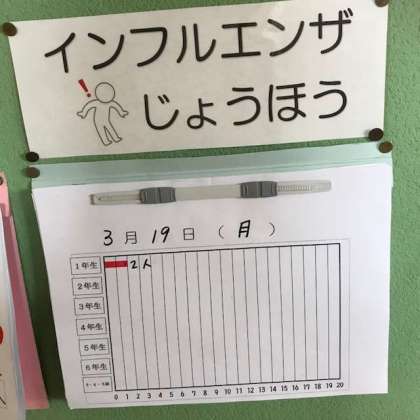 インフルエンザ
じょうほう
3月19日（月）
1年生 2人
2年生
3年生
4年生
5年生
6年生
0 1 2 3 4 5 6 7 8 9 10 11 12 13 14 15 16 17 18 19 20